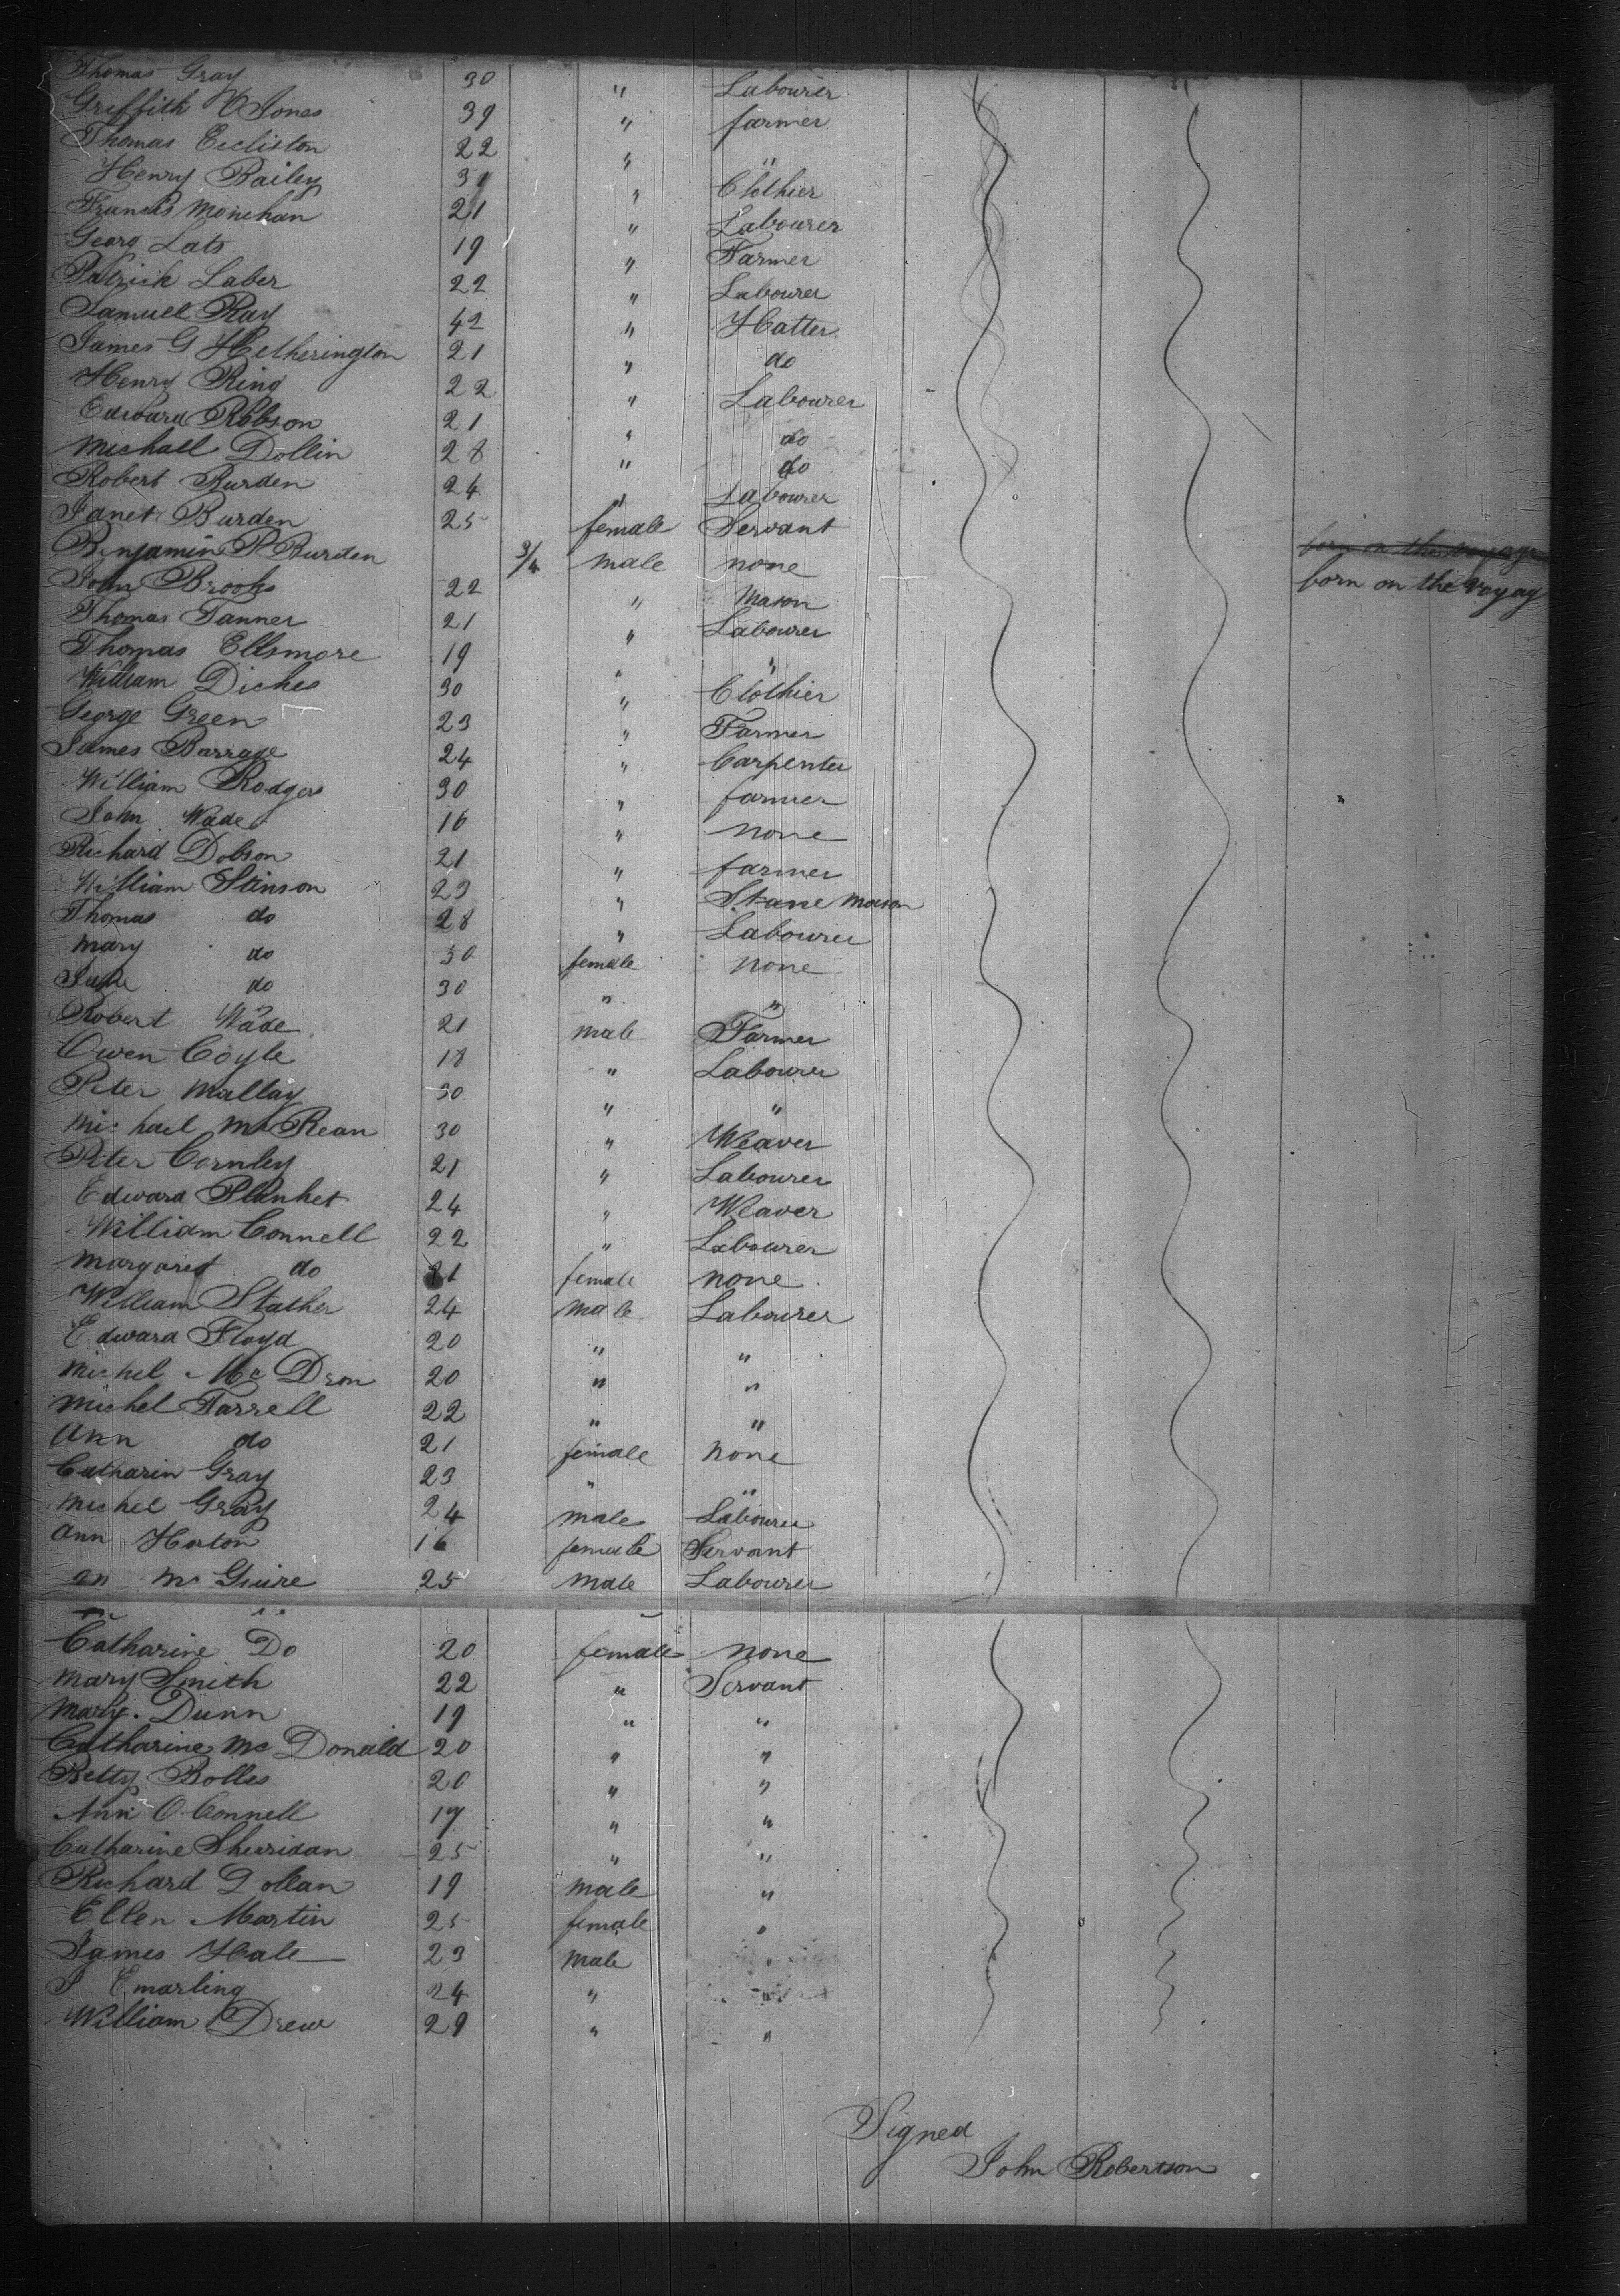 Thomas Gray 30 " Labourer
Griffith W Jones 39 " farmer
Thomas Eccliston 22 " "
Henry Bailey 31 " Clothier
Francis Monehan 21 " Labourer
Georg Lats 19 " Farmer
Patrick Laber 22 " Labourer
Samuel Ray 42 " Hatter
James G Hetherington 21 " do
Henry Ring 22 " Labourer
Edward Robson 21 " do
Michall Dollin 28 " do
Robert Burden 24 " Labourer
Janet Burden 25 female Servant
Benjamin R Burden 3/4 male none born on the voyage
John Brooks 22 " Mason born on the voyag
Thomas Tanner 21 " Labourer
Thomas Ellsmore 19 " "
William Diches 30 " Clothier
George Green 23 " Farmer
James Barrage 24 " Carpenter
William Rodgers 30 " farmer
John Wade 16 " none
Richard Dobson 21 " farmer
William Stinson 23 " Stane Mason
Thomas do 28 " Labourer
Mary do 30 female none
do 30 " "
Robert Wade 21 male Farmer
Owen Coyle 18 " Labourer
Peter Mallay 30 " "
Michael Mc Rean 30 " Weaver
Peter Cornley 21 " Labourer
Edward Plunket 24 " Weaver
William Connell 22 " Labourer
Margaret do 21 female none
William Stather 24 male Labourer
Edward Floyd 20 " "
Michel Mc Dron 20 " "
Michel Farrell 22 " "
Ann do 21 female none
Catharin Gray 23 " "
Michel Gray 24 male Labourer
Ann Horton 16 female Servant
Mc Guire 25 male Labourer
Catharine Do 20 female none
Mary Smith 22 " Servant
Mary. Dunn 19 " "
Catharine Mc Donald 20 " "
Betty Bolles 20 " "
Ann O Connell 17 " "
Catharine Sheridan 25 " "
Richard Dollan 19 male "
Ellen Martin 25 female "
James Hale 23 male "
Emarling 24 " "
William Drew 29 " "
Signed
John Robertson